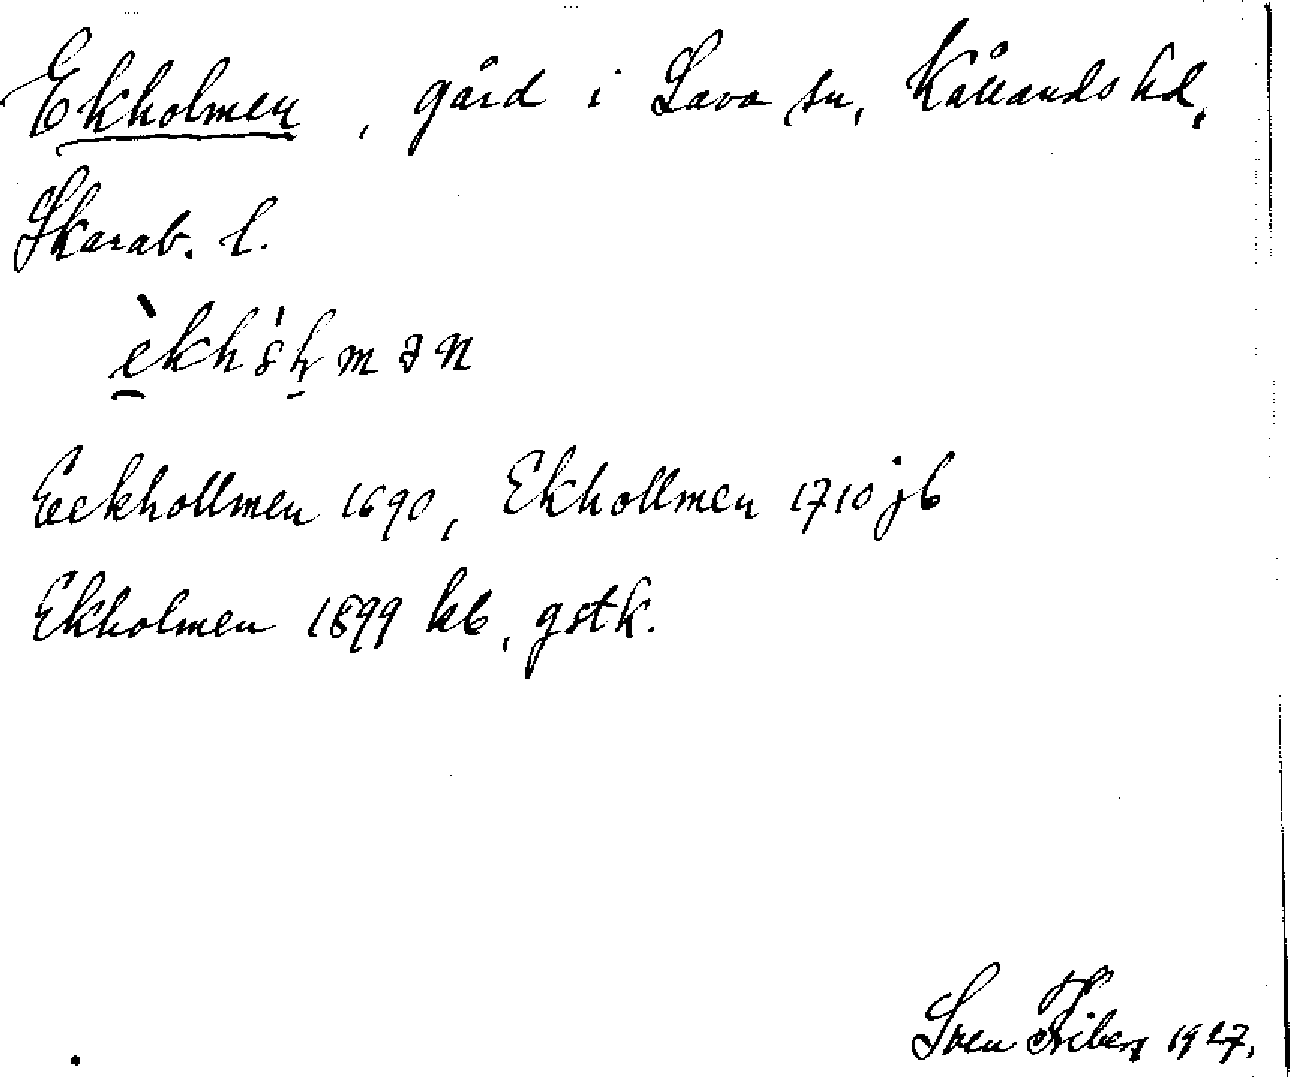 Ekholmen, gård i Lava sn, Kållands hd,
Skarab. l.
Eekhollmen 1690, Ekhollmen 1710 jb
Ekholmen 1899 kb, gstk.
Sven Friberg 1927.